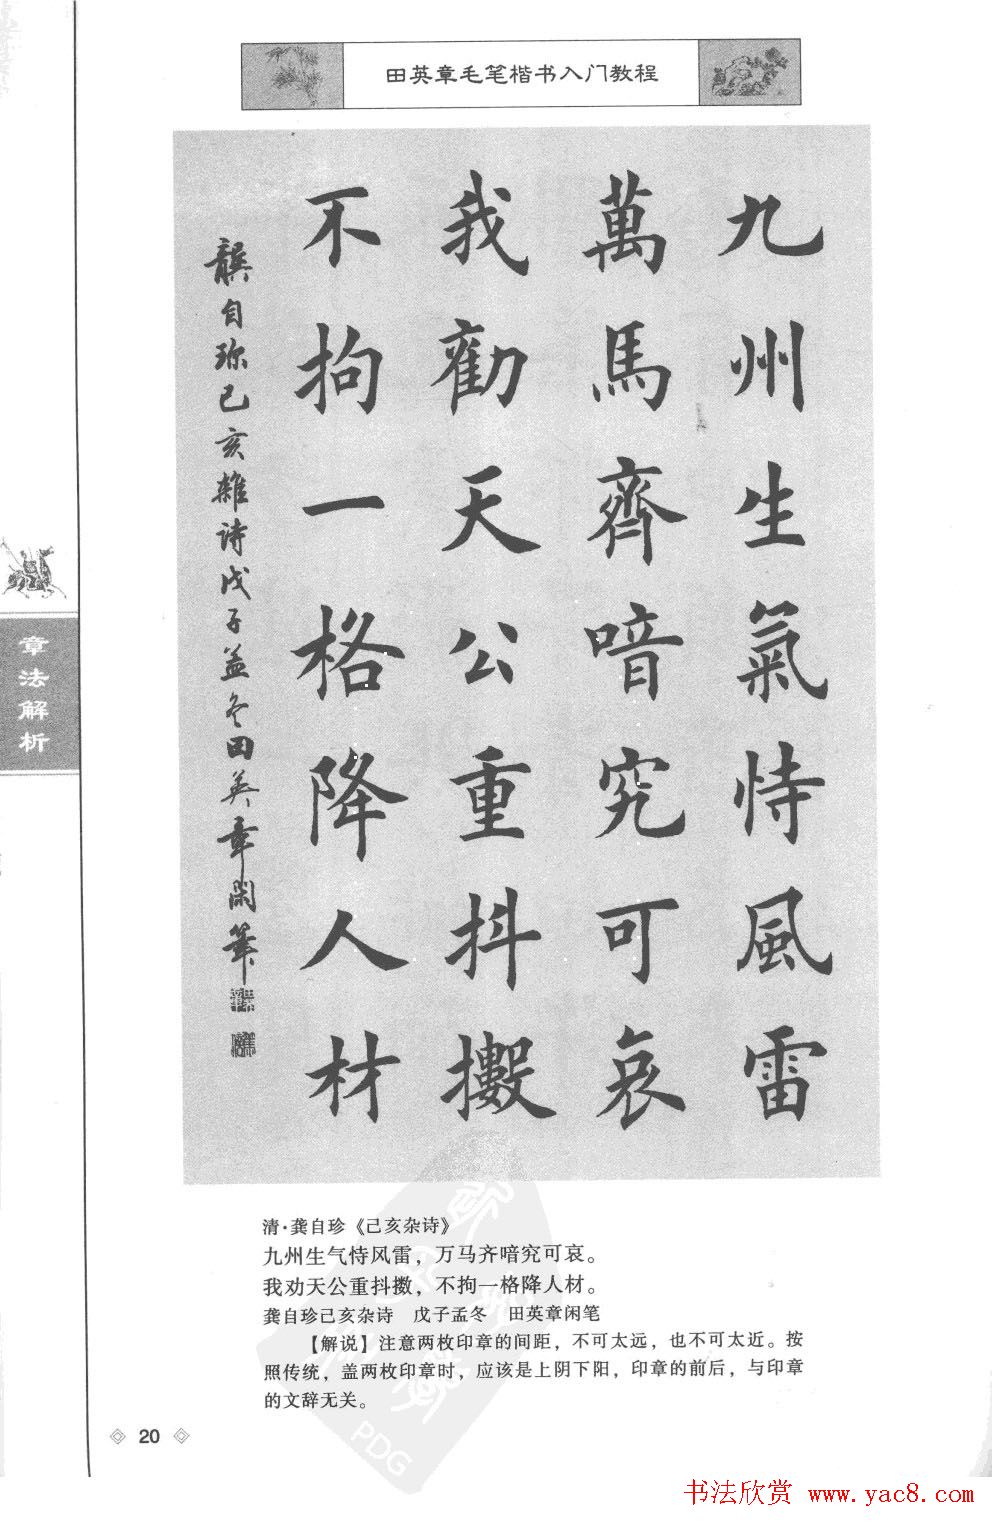 田英章毛笔楷书入门教程
九州生氣恃風雷
萬馬齊喑究可哀
我勸天公重抖擻
不拘一格降人材
龔自珍己亥雜詩戊子孟冬田英章閑筆
章法解析
清·龚自珍《己亥杂诗》
九州生气恃风雷，万马齐喑究可哀。
我劝天公重抖擞，不拘一格降人材。
龚自珍己亥杂诗　戊子孟冬　田英章闲笔
【解说】注意两枚印章的间距，不可太远，也不可太近。按
照传统，盖两枚印章时，应该是上阴下阳，印章的前后，与印章
的文辞无关。
20
PDG
书法欣赏 www.yac8.com